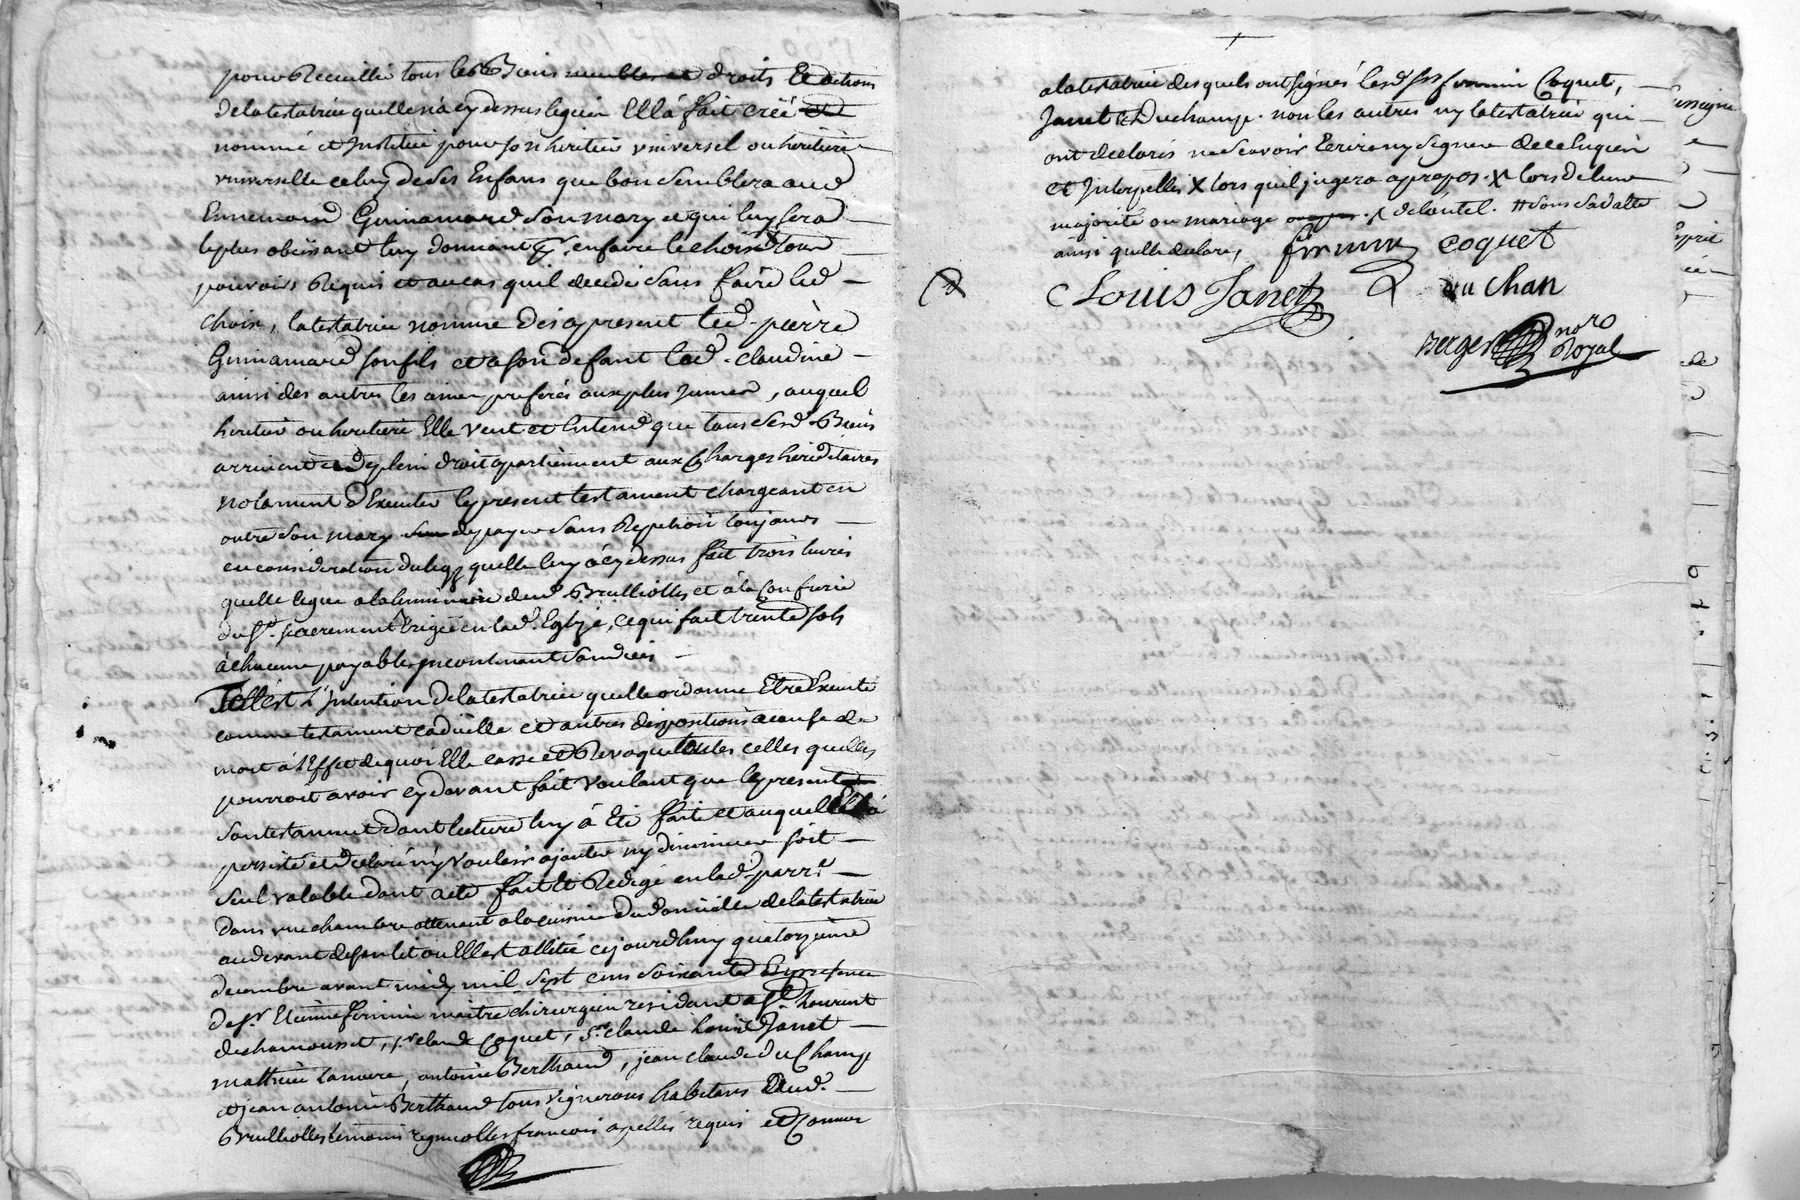 pour Recueillir tous les Biens meubles et droits Et actions
delatestatrice quelle n'a cy dessus legués Ella fait créé et
nommé et Institué pour son heritier universel ou heritiere
universelle celuy de Ses Enfans que bon Semblera aud
Ennemond Guinamard Son mary et qui luy sera
leplus obeissant luy donnant pr. enfaire lechoix tour
pouvoirs Requis et aucas quil decede Sans faire led
choix, latestatrice nomme dés apresent led. pierre
Guinamard son fils et a son defaut lad. claudine
ainsi des autres les ainés preferés auxplus Jeunes, auquel
heritier ou heritiere Elle veut et Entend que tous Sesd. Biens
arrivent et deplein droit apartiennent aux Charges hereditaires
notament d'Executer lepresent testament chargeant en
outre Son mary depayer Sans Repetition toujours
en consideration du legs quelle luy a cy dessus fait trois livres
quelle legue alaluminaire dud Brulliolles et à la Confrerie
du St. Sacrement Erigée en lad. Eglise, cequi fait trente sols
à chacune payables incontinent Son decés
Telle est L'Intention delatestatrice quelle ordonne Etre Executé
comme testament codicille et autres dispositions acause de
mort à l'Effet dequoi Elle casse et Revoque toutes celles quelles
pourroit avoir cy devant fait voulant que lepresent
Son testament dont lecture luy à Eté fait et auquel Ella
persisté et declaré n'y vouloir ajouter ny diminuer soit
Seul valable dont acte fait Et Redigé en lad. parr.e
dans une chambre attenant a la cuisine du domicille de latestatrice
audevant deson lit ou Elle est allitée cejourdhuy quatorzieme
decembre avant midy mil Sept cens soixante En presence
de sr. Etienne firmin maitre chirurgien residant a St. Laurent
dechamousset, sr. claude Coquet, Sr. claude Louis Janet
mathieu Lanoire, antoine Berthaud, jean claude du Champ
et jean antoine Berthaud tous vignerons habitans Dud.
Brulliolles temoins regnicolles francois apellés requis et Connus
alatestatrice desquels ont signés lesd. srs firmin Coquet,
Janet et Duchamp. non les autres ny latestatrice qui
ont declarés ne Scavoir Ecrire ny Signer decelenquis
et Interpellés X lors quil jugera apropos. X lors deleur
majorité ou mariage X delontel. # Sous Sadatte
ainsi quelle declare,
firmin coquet
Louis Janet
du chan
Berger
no.re
Royal